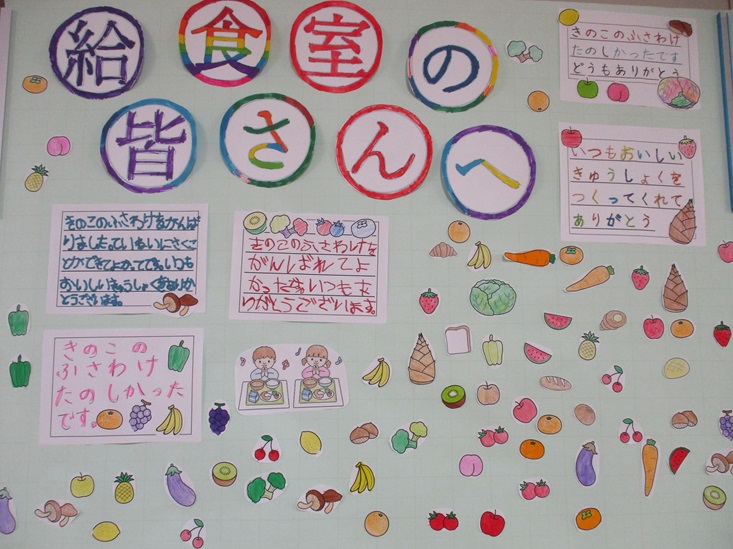 給食室の
皆さんへ
きのこのふさわけ
たのしかったです
どうもありがとう
いつもおいしい
きゅうしょくを
つくってくれて
ありがとう
きのこのふさわけをがんば
りました。ていねいにさくこ
とができてよかったです。いつも
おいしいきゅうしょくをありが
とうございます。
きのこのふさわけを
がんばれてよ
かったです。いつもあ
りがとうございます。
きのこの
ふさわけ
たのしかった
です。